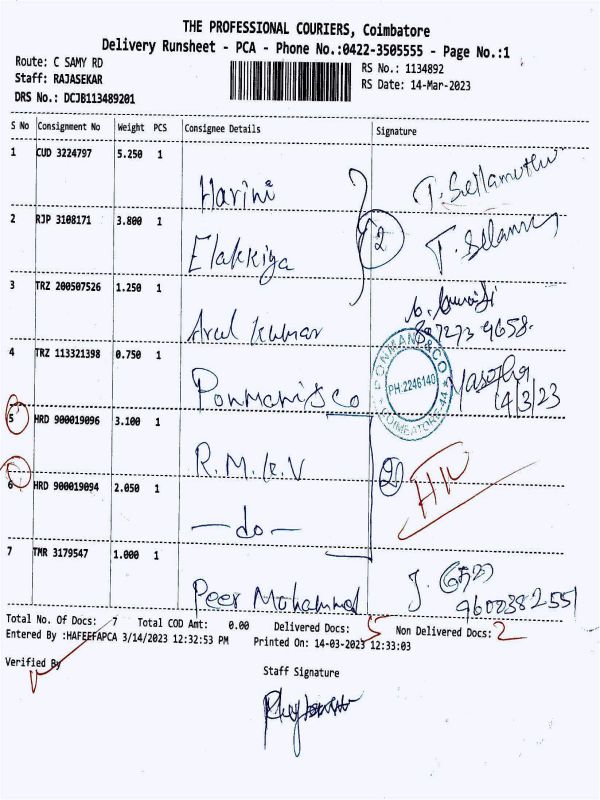 THE PROFESSIONAL COURIERS, Coimbatore
Delivery Runsheet - PCA - Phone No.:0422-3505555 - Page No.:1
Route: C SAMY RD
RS No.: 1134892
Staff: RAJASEKAR
RS Date: 14-Mar-2023
DRS No.: DCJB113489201
S No Consignment No Weight PCS Consignee Details Signature
1 CUD 3224797 5.250 1 Harini T. Sellamuthu
2 RJP 3108171 3.800 1 Elakkiya 2
3 TRZ 200507526 1.250 1 Arul Kumar
4 TRZ 113321398 0.750 1 Ponmani & co
PONMANI & CO
PH:2246140
COIMBATORE-44
14/3/23
5 HRD 900019096 3.100 1 R.M.K.V
6 HRD 900019094 2.050 1 -do-
7 TMR 3179547 1.000 1 Peer Mohammed
9600382551
Total No. Of Docs: 7 Total COD Amt: 0.00 Delivered Docs: 5 Non Delivered Docs: 2
Entered By :HAFEEFAPCA 3/14/2023 12:32:53 PM Printed On: 14-03-2023 12:33:03
Verified By
Staff Signature